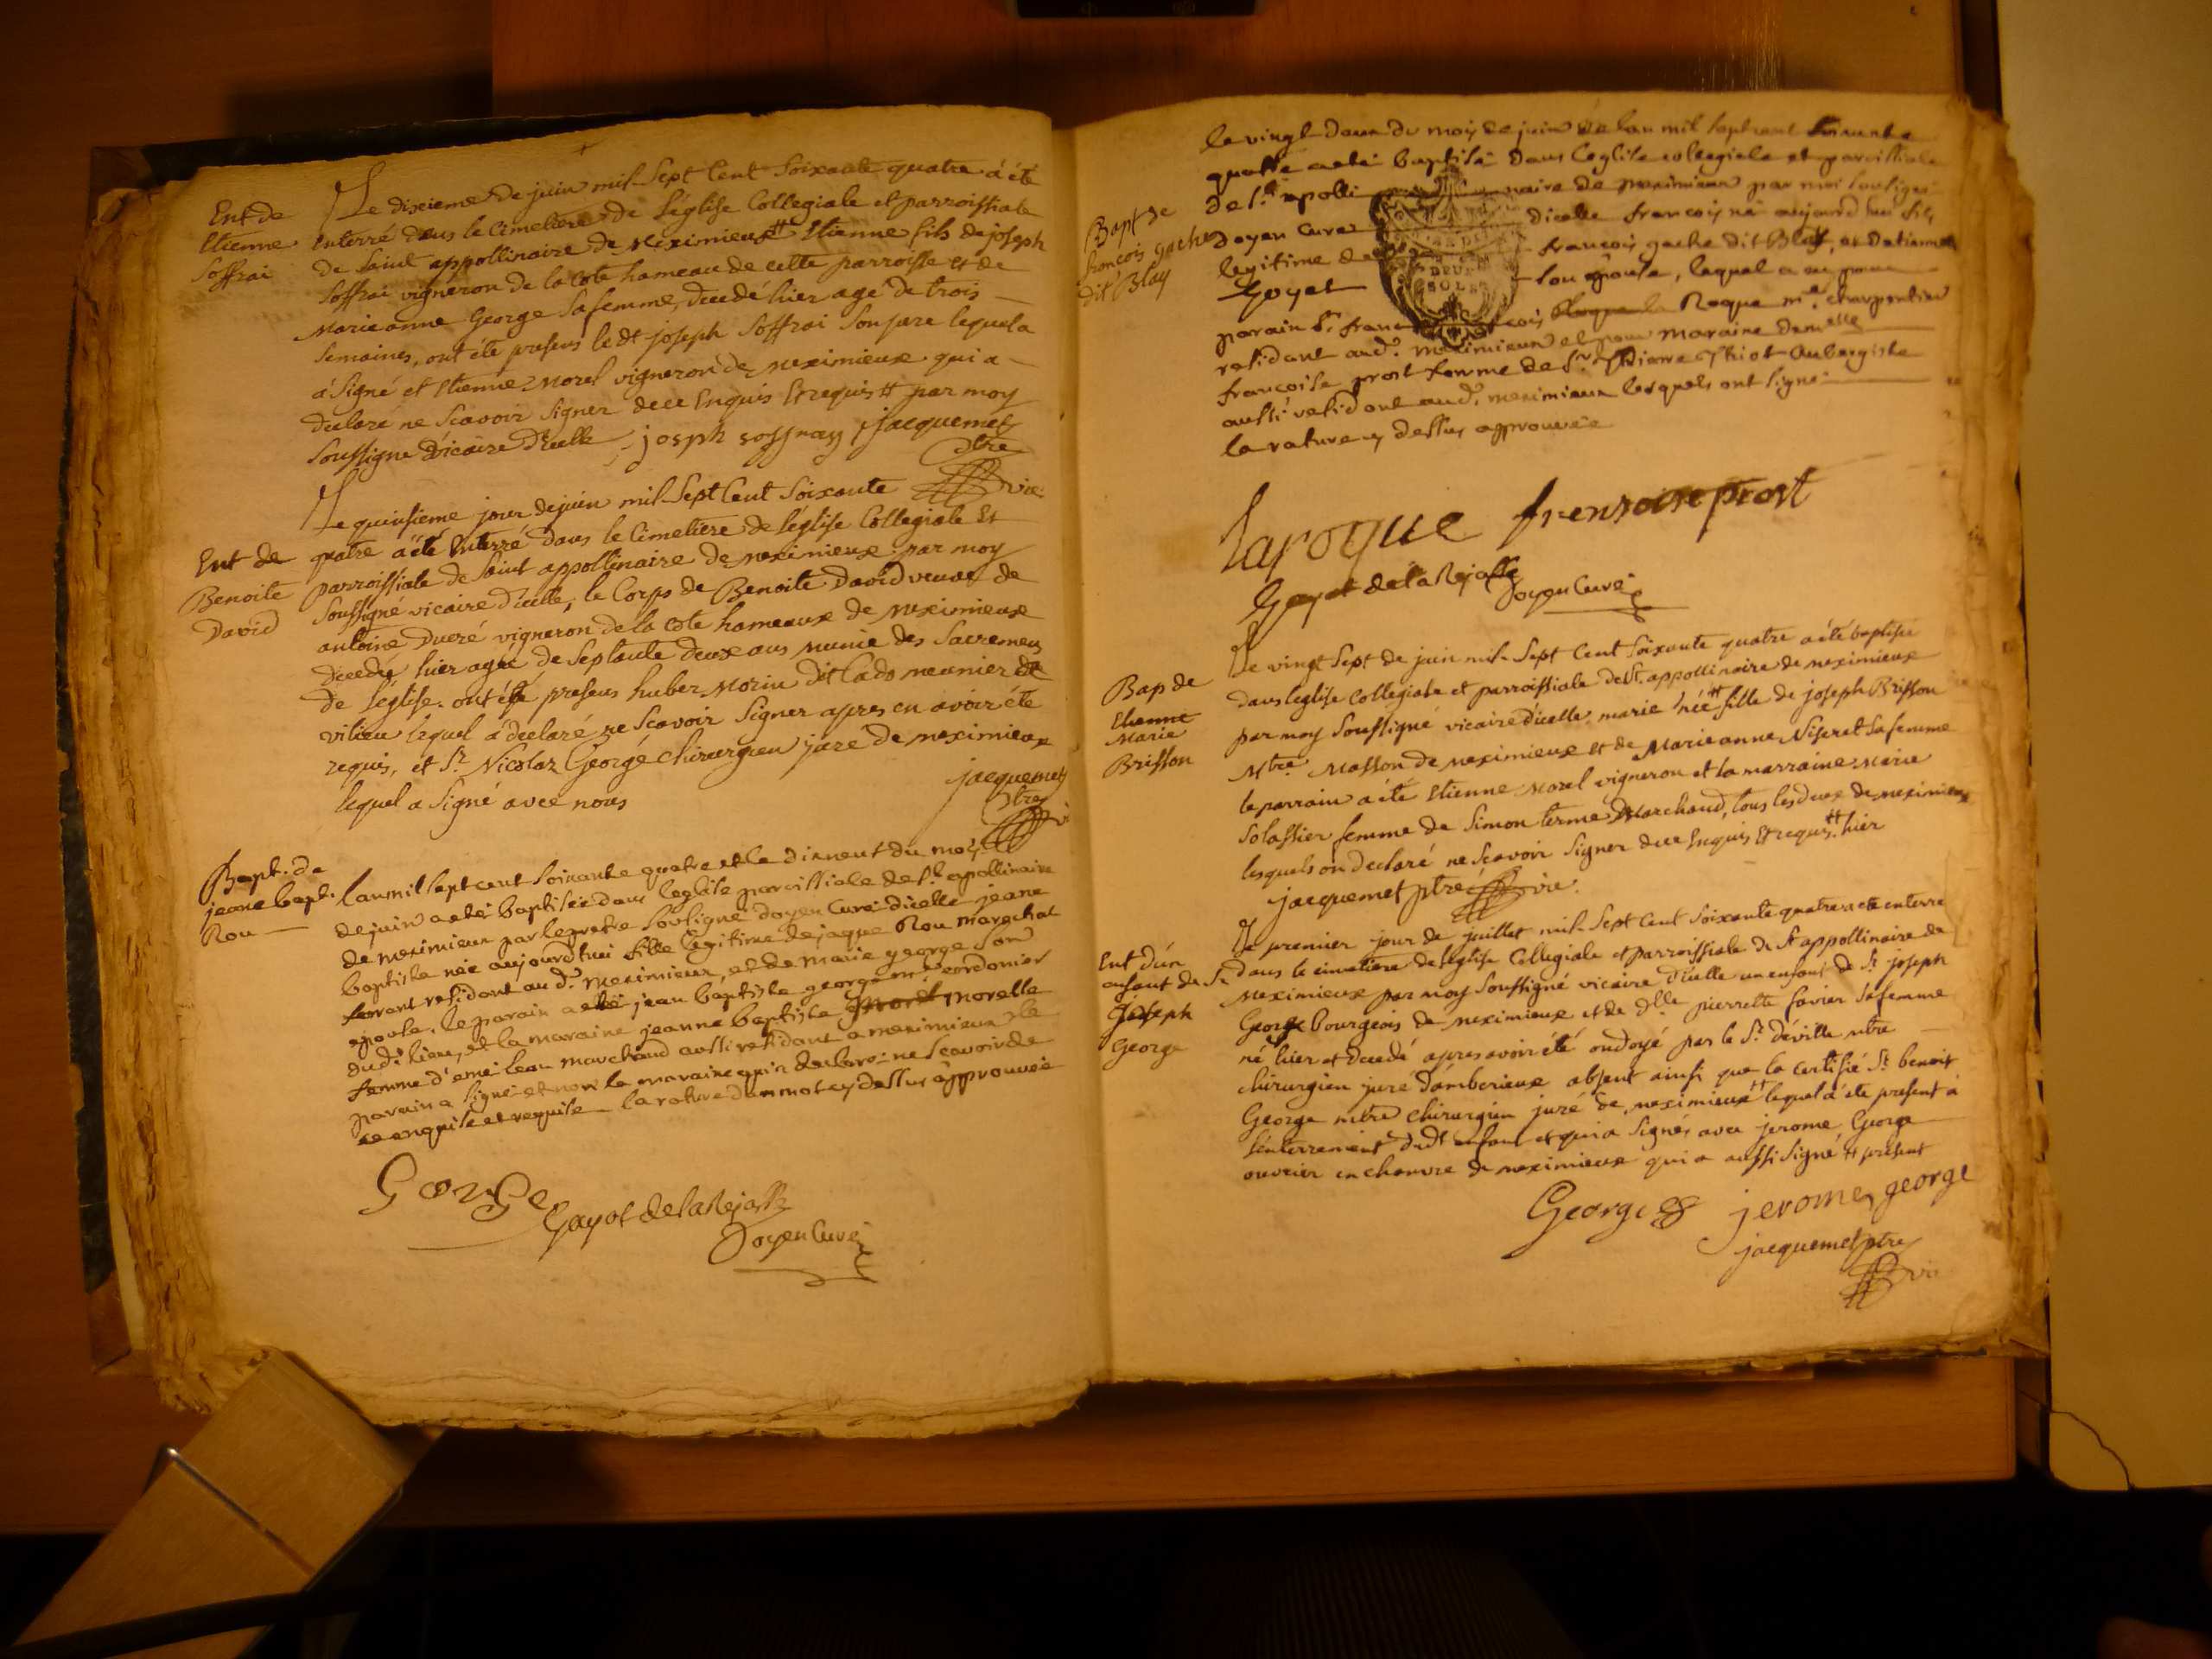 Ent de
Etienne
Soffrai
Le dixieme de juin mil Sept Cent Soixante quatre á été
enterré dans le Cimetiere de L'église Collegiale et parroissiale
de Saint appollinaire de meximieux # Etienne fils de joseph
Soffrai vigneron de la Cote hameau de cette parroisse et de
Marieanne George Sa femme, decedé hier agé de trois
Semaines, ont été presens le dt joseph Soffrai Son pere lequel a
á Signé et Etienne Morel vigneron de meximieux qui a
declaré ne Scavoir Signer de ce Enquis Et requis # par moy
Soussigné vicaire d'icelle josph soffray jacquemet
ptre
vic:
Ent de
Benoite
David
Le quinsieme jour de juin mil Sept Cent Soixante
quatre á été Enterré dans le Cimetiere de L'église Collegiale Et
parroissiale de Saint appollinaire de meximieux par moy
Soussigné vicaire d'icelle, le Corps de Benoite David veuve de
antoine Ducré vigneron de la Cote hameaux de meximieux
decedée hier agée de Septante deux ans munie des Sacremens
de L'église. ont été presens huber Morin dit Cado meunier de
vilieu lequel á declaré ne Scavoir Signer apres en avoir été
requis, et Sr Nicolaz George chirurgien juré de meximieux
lequel a Signé avec nous
jacquemet
ptre
vi
Bapt. de
jeane bapt.
Rou
L'an mil sept cent soixante quatre et le dixneuf du mois
de juin a eté baptisée dans l'eglise paroissiale de St apollinaire
de meximieux par le pretre soussigné doyen curé d'icelle jeane
baptiste née aujourd'hui fille legitime de jaque Rou marechal
ferrant residant au d. meximieux, et de marie george son
epouse. le parain a eté jean baptiste george me cordonier
du d. lieu, et la maraine jeanne baptiste morelle
femme d' marchand aussi residant a meximieux le
parain a signé et non la maraine qui a declaré ne scavoir de
ce enquise et requise la rature d'un mot cy dessus approuvée
George
Gayot de la Rejasse
Doyen Curé
Bapt de
francois gache
dit Blay
le vingt deux du mois de juin de l'an mil sept cent soixante
quatre a eté baptisé dans l'eglise collegiale et paroissiale
de St apolli naire de meximieux par moi soussigné
doyen curé d'icelle francois né aujourd'hui fils
legitime de francois gache dit Blay, et d'etiennette
Goyet son epouse, lequel a eu pour
parain Sr franc cois la Roque me charpentier
residant aud. meximieux et pour maraine demelle
francoise prost femme de Sr Thiriot Aubergiste
aussi residant aud. meximieux lesquels ont signé
la rature cy dessus approuvée
laroque frensoise prost
Gayot de la Rejasse
Doyen Curé
Bap de
Etienne
Marie
Brisson
Le vingt Sept de juin mil Sept Cent Soixante quatre a été baptisée
dans l'eglise Collégiale et parroissiale de St. appollinaire de meximieux
par moy Soussigné vicaire d'icelle marie née # fille de joseph Brisson
Mtre Masson de meximieux et de Marieanne Niseret Sa femme
le parrain a été Etienne Morel vigneron et la marraine Marie
Solassier femme de Simon terme Marchand, tous les deux de meximieux
lesquels on declaré ne Scavoir Signer de ce Enquis Et requis. # hier
jacquemet ptre vic.
Ent d'un
enfant de Sr
Joseph
George
Le premier jour de juillet mil Sept Cent Soixante quatre a été enterré
dans le cimetiere de l'église Collegiale et parroissiale de St appollinaire de
Meximieux par moy Soussigné vicaire d'icelle un enfant de Sr joseph
George bourgeois de meximieux et de dlle pierrette favier Sa femme
né hier et decedé apres avoir été ondoyé par le Sr déville mtre
chirurgien juré d'amberieux absent ainsi que la certifié Sr benoit
George mtre chirurgien juré de meximieux # lequel a été present a
l'enterrement dudt enfant et qui a Signé avec jerome George
ouvrier en chanvre de meximieux qui a aussi Signé # present
George jerome george
jacquemet ptre
vic